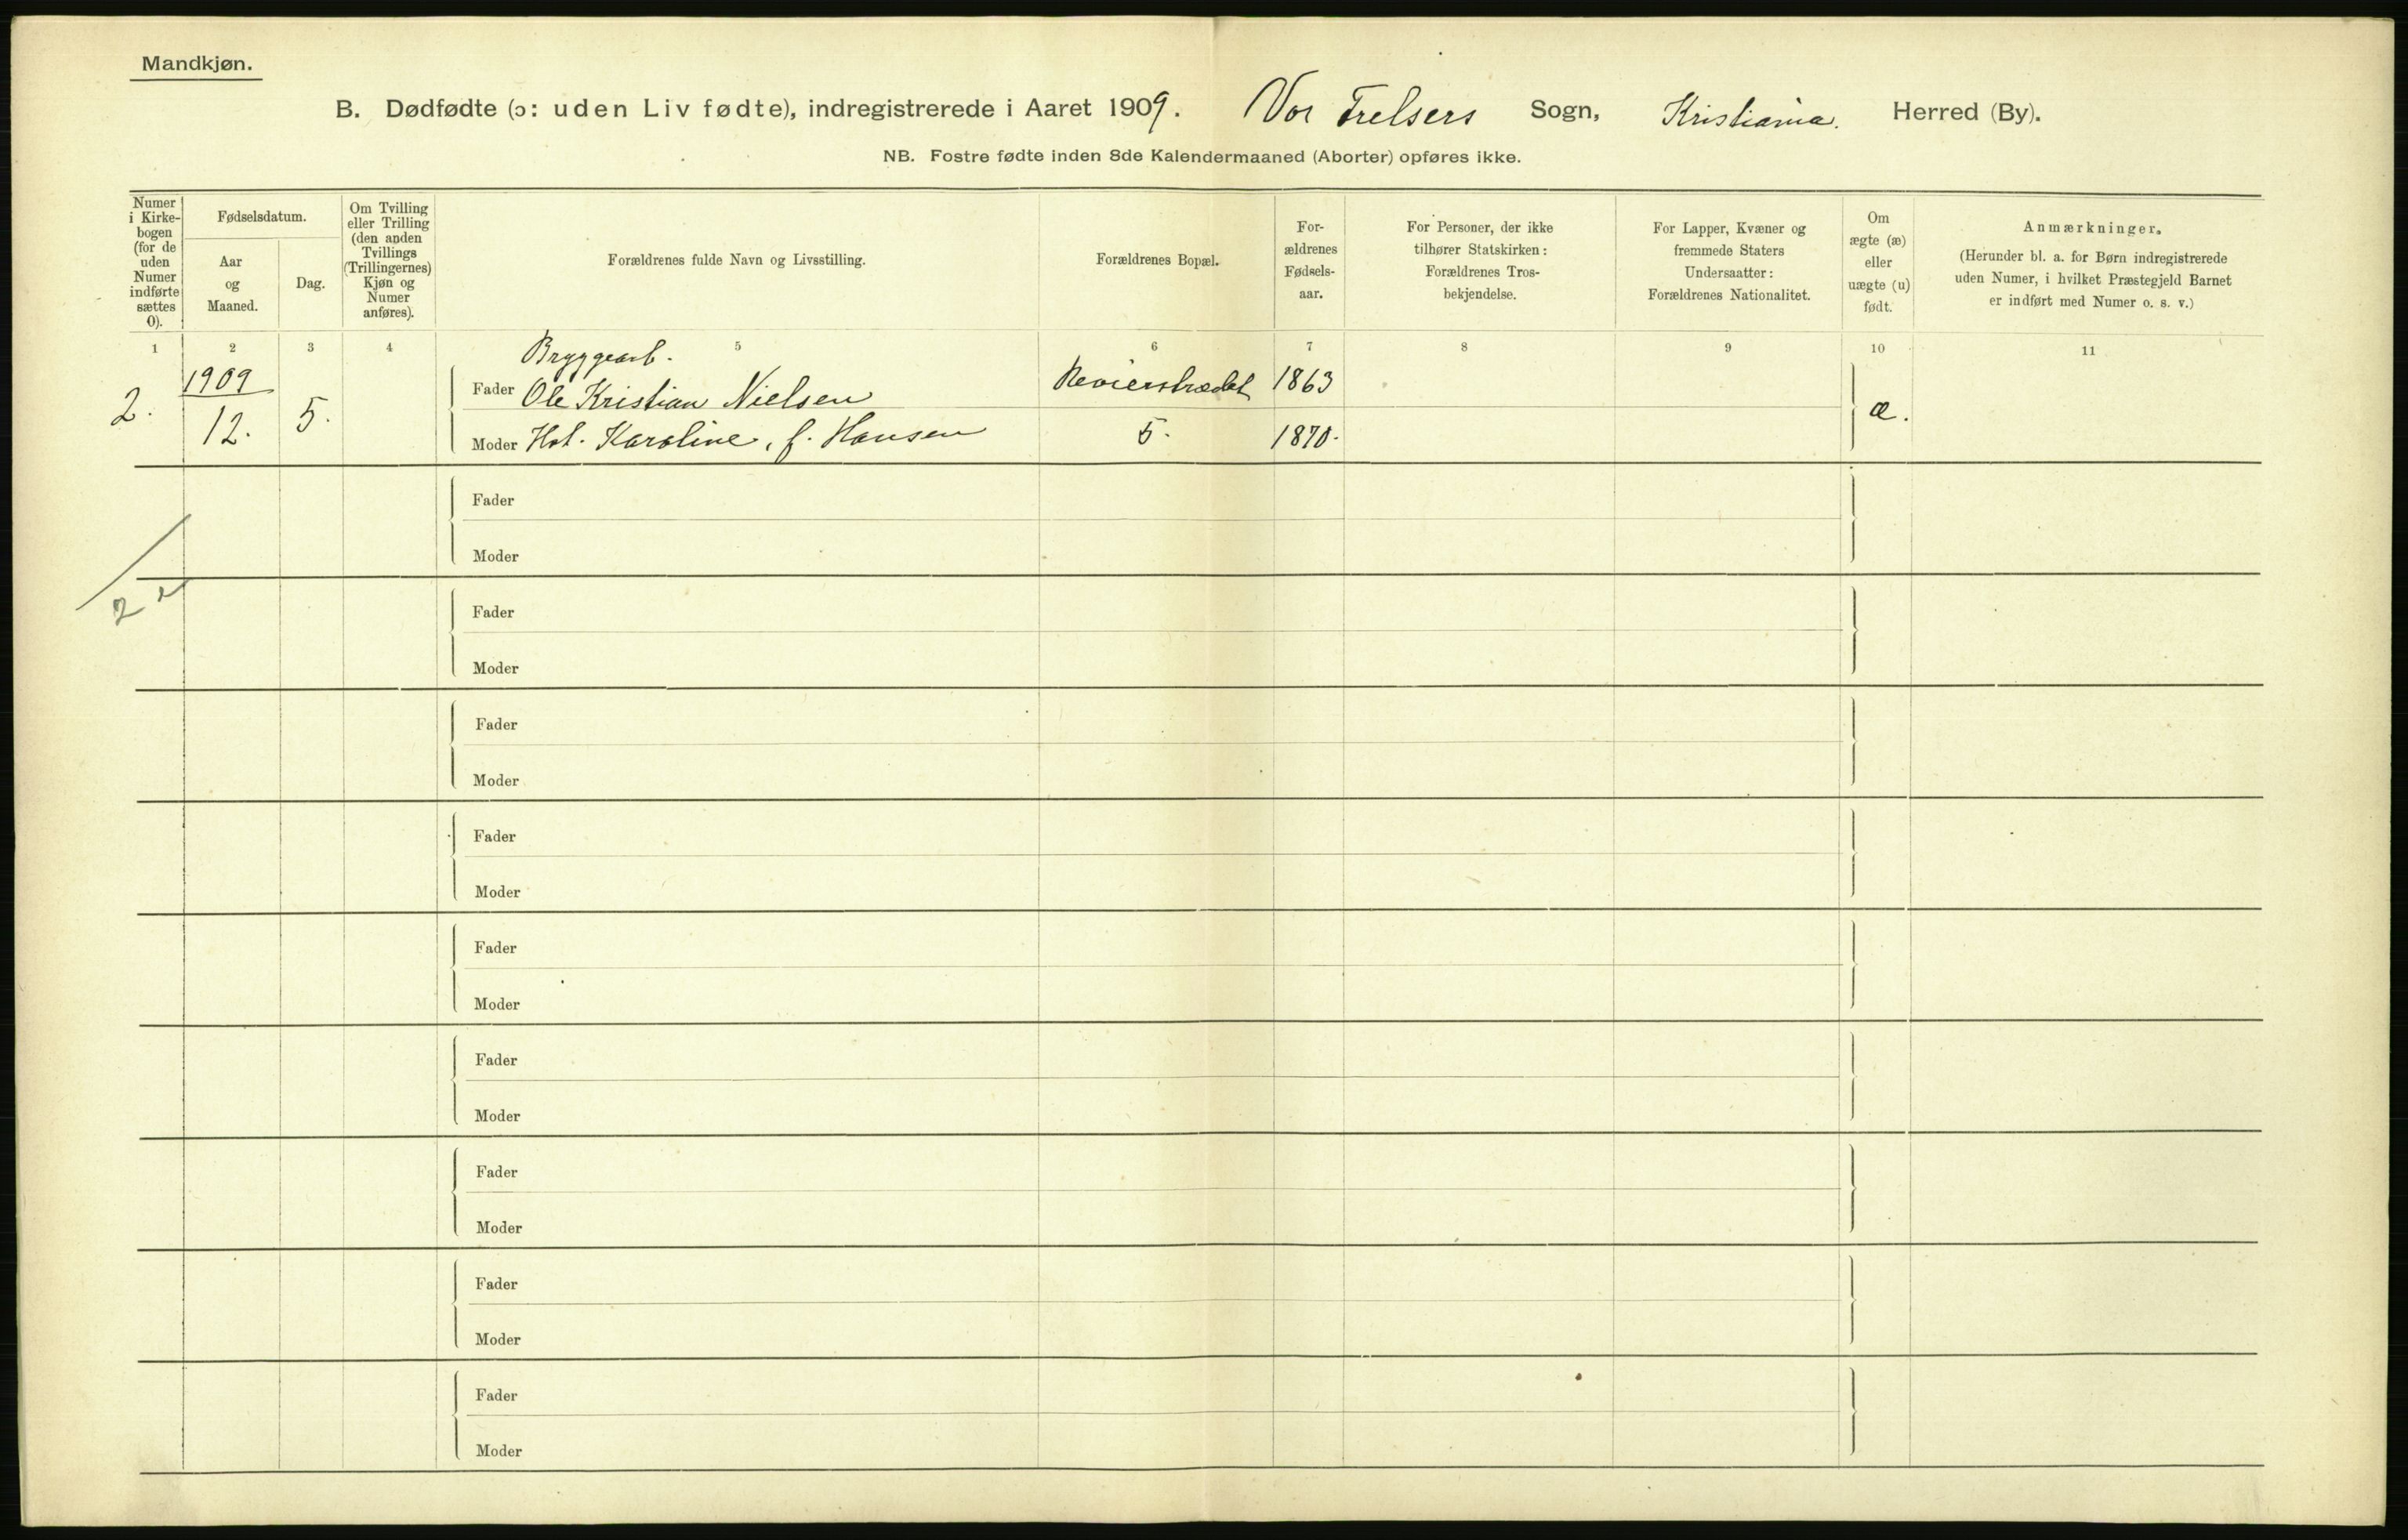 Mandkjøn.
B. Dødfødte (ɔ: uden Liv fødte), indregistrerede i Aaret 1909. Vor Frelsers Sogn, Kristiania. Herred (By).
NB. Fostre fødte inden 8de Kalendermaaned (Aborter) opføres ikke.
Numer
i Kirke-
bogen
(for de
uden
Numer
indførte
sættes
0).
Fødselsdatum.
Aar
og
Maaned.
Dag.
Om Tvilling
eller Trilling
(den anden
Tvillings
(Trillingernes)
Kjøn og
Numer
anføres).
Forældrenes fulde Navn og Livsstilling.
Forældrenes Bopæl.
For-
ældrenes
Fødsels-
aar.
For Personer, der ikke
tilhører Statskirken:
Forældrenes Tros-
bekjendelse.
For Lapper, Kvæner og
fremmede Staters
Undersaatter:
Forældrenes Nationalitet.
Om
ægte (æ)
eller
uægte (u)
født.
Anmærkninger.
(Herunder bl. a. for Børn indregistrerede
uden Numer, i hvilket Præstegjeld Barnet
er indført med Numer o. s. v.)
1 2 3 4 5 6 7 8 9 10 11
Bryggearb.
2. 1909 12. 5.
Fader Ole Kristian Nielsen Revierstrædet 1863
Moder Hst. Karoline, f. Hansen 5. 1870. æ.
Fader
Moder
2
Fader
Moder
Fader
Moder
Fader
Moder
Fader
Moder
Fader
Moder
Fader
Moder
Fader
Moder
Fader
Moder